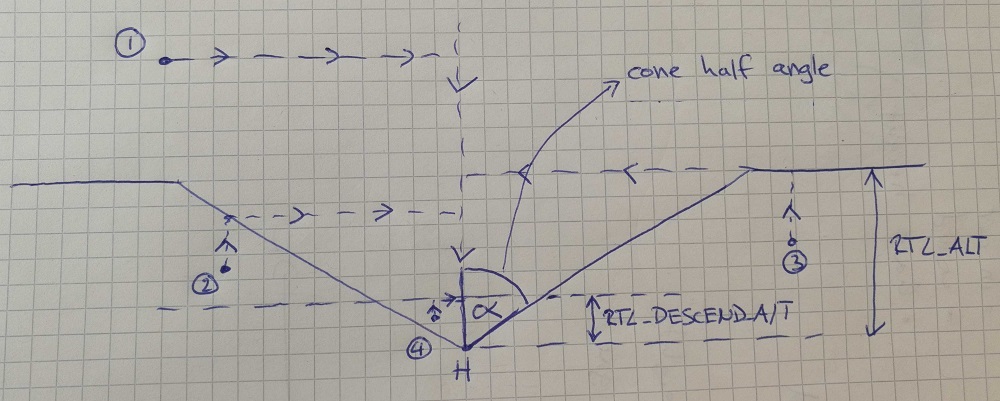 ①
cone half angle
②
③
RTL_ALT
α
RTL_DESCEND_ALT
④
H